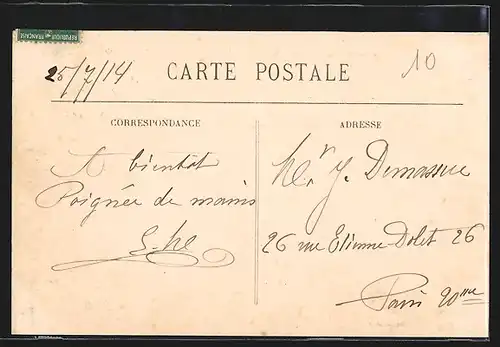 REPUBLIQUE FRANÇAISE
25/7/14
CARTE POSTALE
10
CORRESPONDANCE
A bientot
Poignée de mains
ADRESSE
Mr. J. Demassue
26 rue Etienne-Dolet 26
Paris 20me